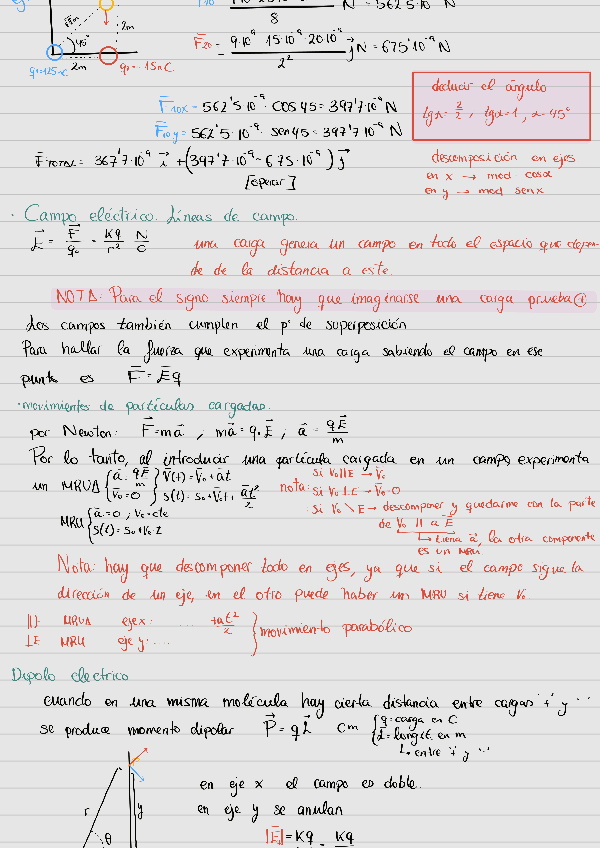 8
N = 562'5·10⁻⁹
45°
2m
2m
q1=125nC
q2=-15nC
F⃗20 = 9·10⁹·15·10⁻⁹·20·10⁻⁹ / 2² j⃗ N = 675·10⁻⁹ N
deducir el ángulo
tgα = 2/2, tgα=1, α=45°
F⃗10x = 562'5·10⁻⁹·cos 45 = 397'7·10⁻⁹ N
F⃗10y = 562'5·10⁻⁹·sen 45 = 397'7·10⁻⁹ N
F⃗TOTAL = 367'7·10⁻⁹ i⃗ + (397'7·10⁻⁹ - 675·10⁻⁹) j⃗
descomposición en ejes
en x → mod cosα
en y → mod senx
· Campo eléctrico. Líneas de campo.
E⃗ = F⃗/q0 = Kq/r² N/C
una carga genera un campo en todo el espacio que depen-
de de la distancia a este.
NOTA: Para el signo siempre hay que imaginarse una carga prueba ⊕
Los campos también cumplen el p° de superposición
Para hallar la fuerza que experimenta una carga sabiendo el campo en ese
punto es F⃗ = E⃗q
· movimientos de partículas cargadas.
por Newton: F⃗=ma⃗ ; ma⃗ = q·E⃗ ; a⃗ = qE⃗/m
Por lo tanto, al introducir una partícula cargada en un campo experimenta
un MRUA { a⃗: qE⃗/m v⃗0=0 } v⃗(t) = v⃗0 + a⃗t s(t) = s0+v0t+ a⃗t²/2
MRU { a⃗=0 ; v0=cte s(t) = s0+v0·t
nota: si V0 ∥ E → V⃗0
si V0 ⊥ E → V⃗0=0
si V0 \ E → descomponer y quedarme con la parte
de V0 ∥ a E⃗
↳ tiene a⃗, la otra componente
es un MRU
Nota: hay que descomponer todo en ejes, ya que si el campo sigue la
dirección de un eje, en el otro puede haber un MRU si tiene V0
∥E MRUA eje x: ..... +at²/2
⊥E MRU eje y: ....
} movimiento parabólico
Dipolo electrico
cuando en una misma molécula hay cierta distancia entre cargas '+' y '-'
se produce momento dipolar P⃗ = qL⃗ Cm { q=carga en C
L=longit. en m
↳ entre '+' y '-'
en eje x el campo es doble.
en eje y se anulan
r
y
θ
|E⃗| = Kq Kq